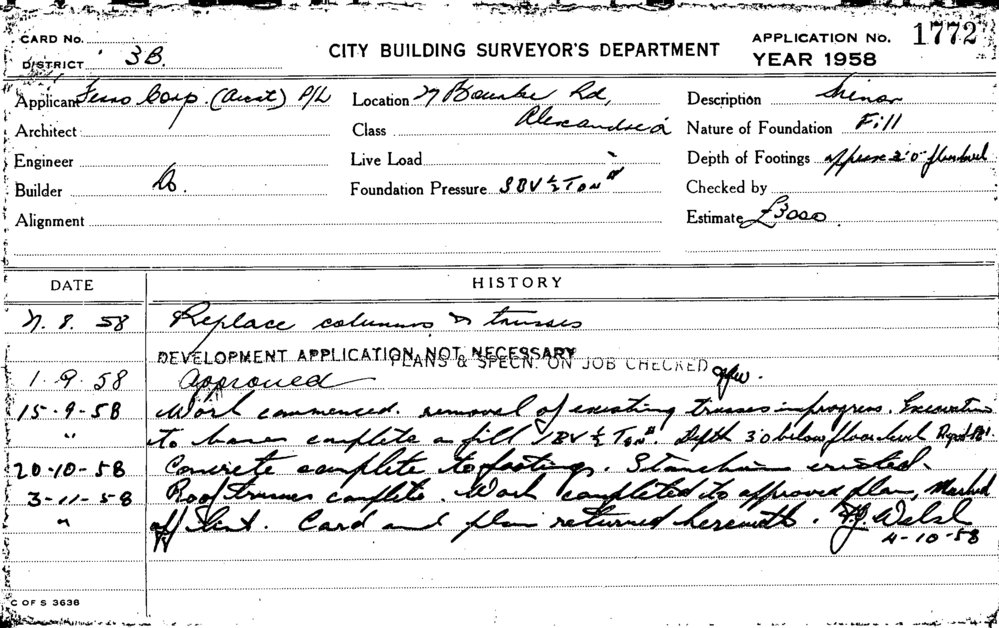 CARD No.
DISTRICT 3B.
CITY BUILDING SURVEYOR'S DEPARTMENT
APPLICATION No. 1772
YEAR 1958
Applicant Corp. (Aust) P/L
Location Bourke Rd,
Alexandria
Description Minor
Architect
Class
Nature of Foundation Fill
Engineer
Live Load
Depth of Footings approx 3'.0" floor level
Builder Do.
Foundation Pressure SBV ½ Ton
Checked by
Alignment
Estimate £3000
DATE
HISTORY
8. 58 Replace columns & trusses
DEVELOPMENT APPLICATION NOT NECESSARY
PLANS & SPECN. ON JOB CHECKED
1. 9. 58 Approved
15-9-58 Work commenced. removal of existing trusses in progress. Excavation
" to bases complete in fill SBV ½ Ton. Depth 3'.0 below floor level
20-10-58 Concrete complete to footings. Stanchions erected.
3-11-58 Roof trusses complete. Work completed to approved plan, Marked
" off Card and plan returned herewith. Welsh
4-10-58
C OF S 3636